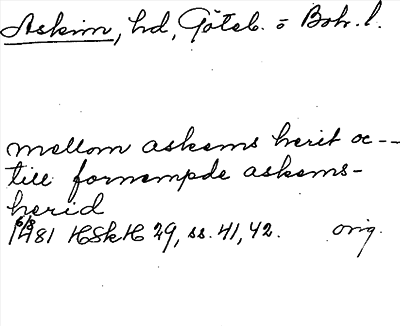 Askim, hd, Göteb. o Boh. l.
mellom askems herit oc --
till fornempde askems-
herid
6/8
1481 HSkH 29, ss. 41, 42. orig.